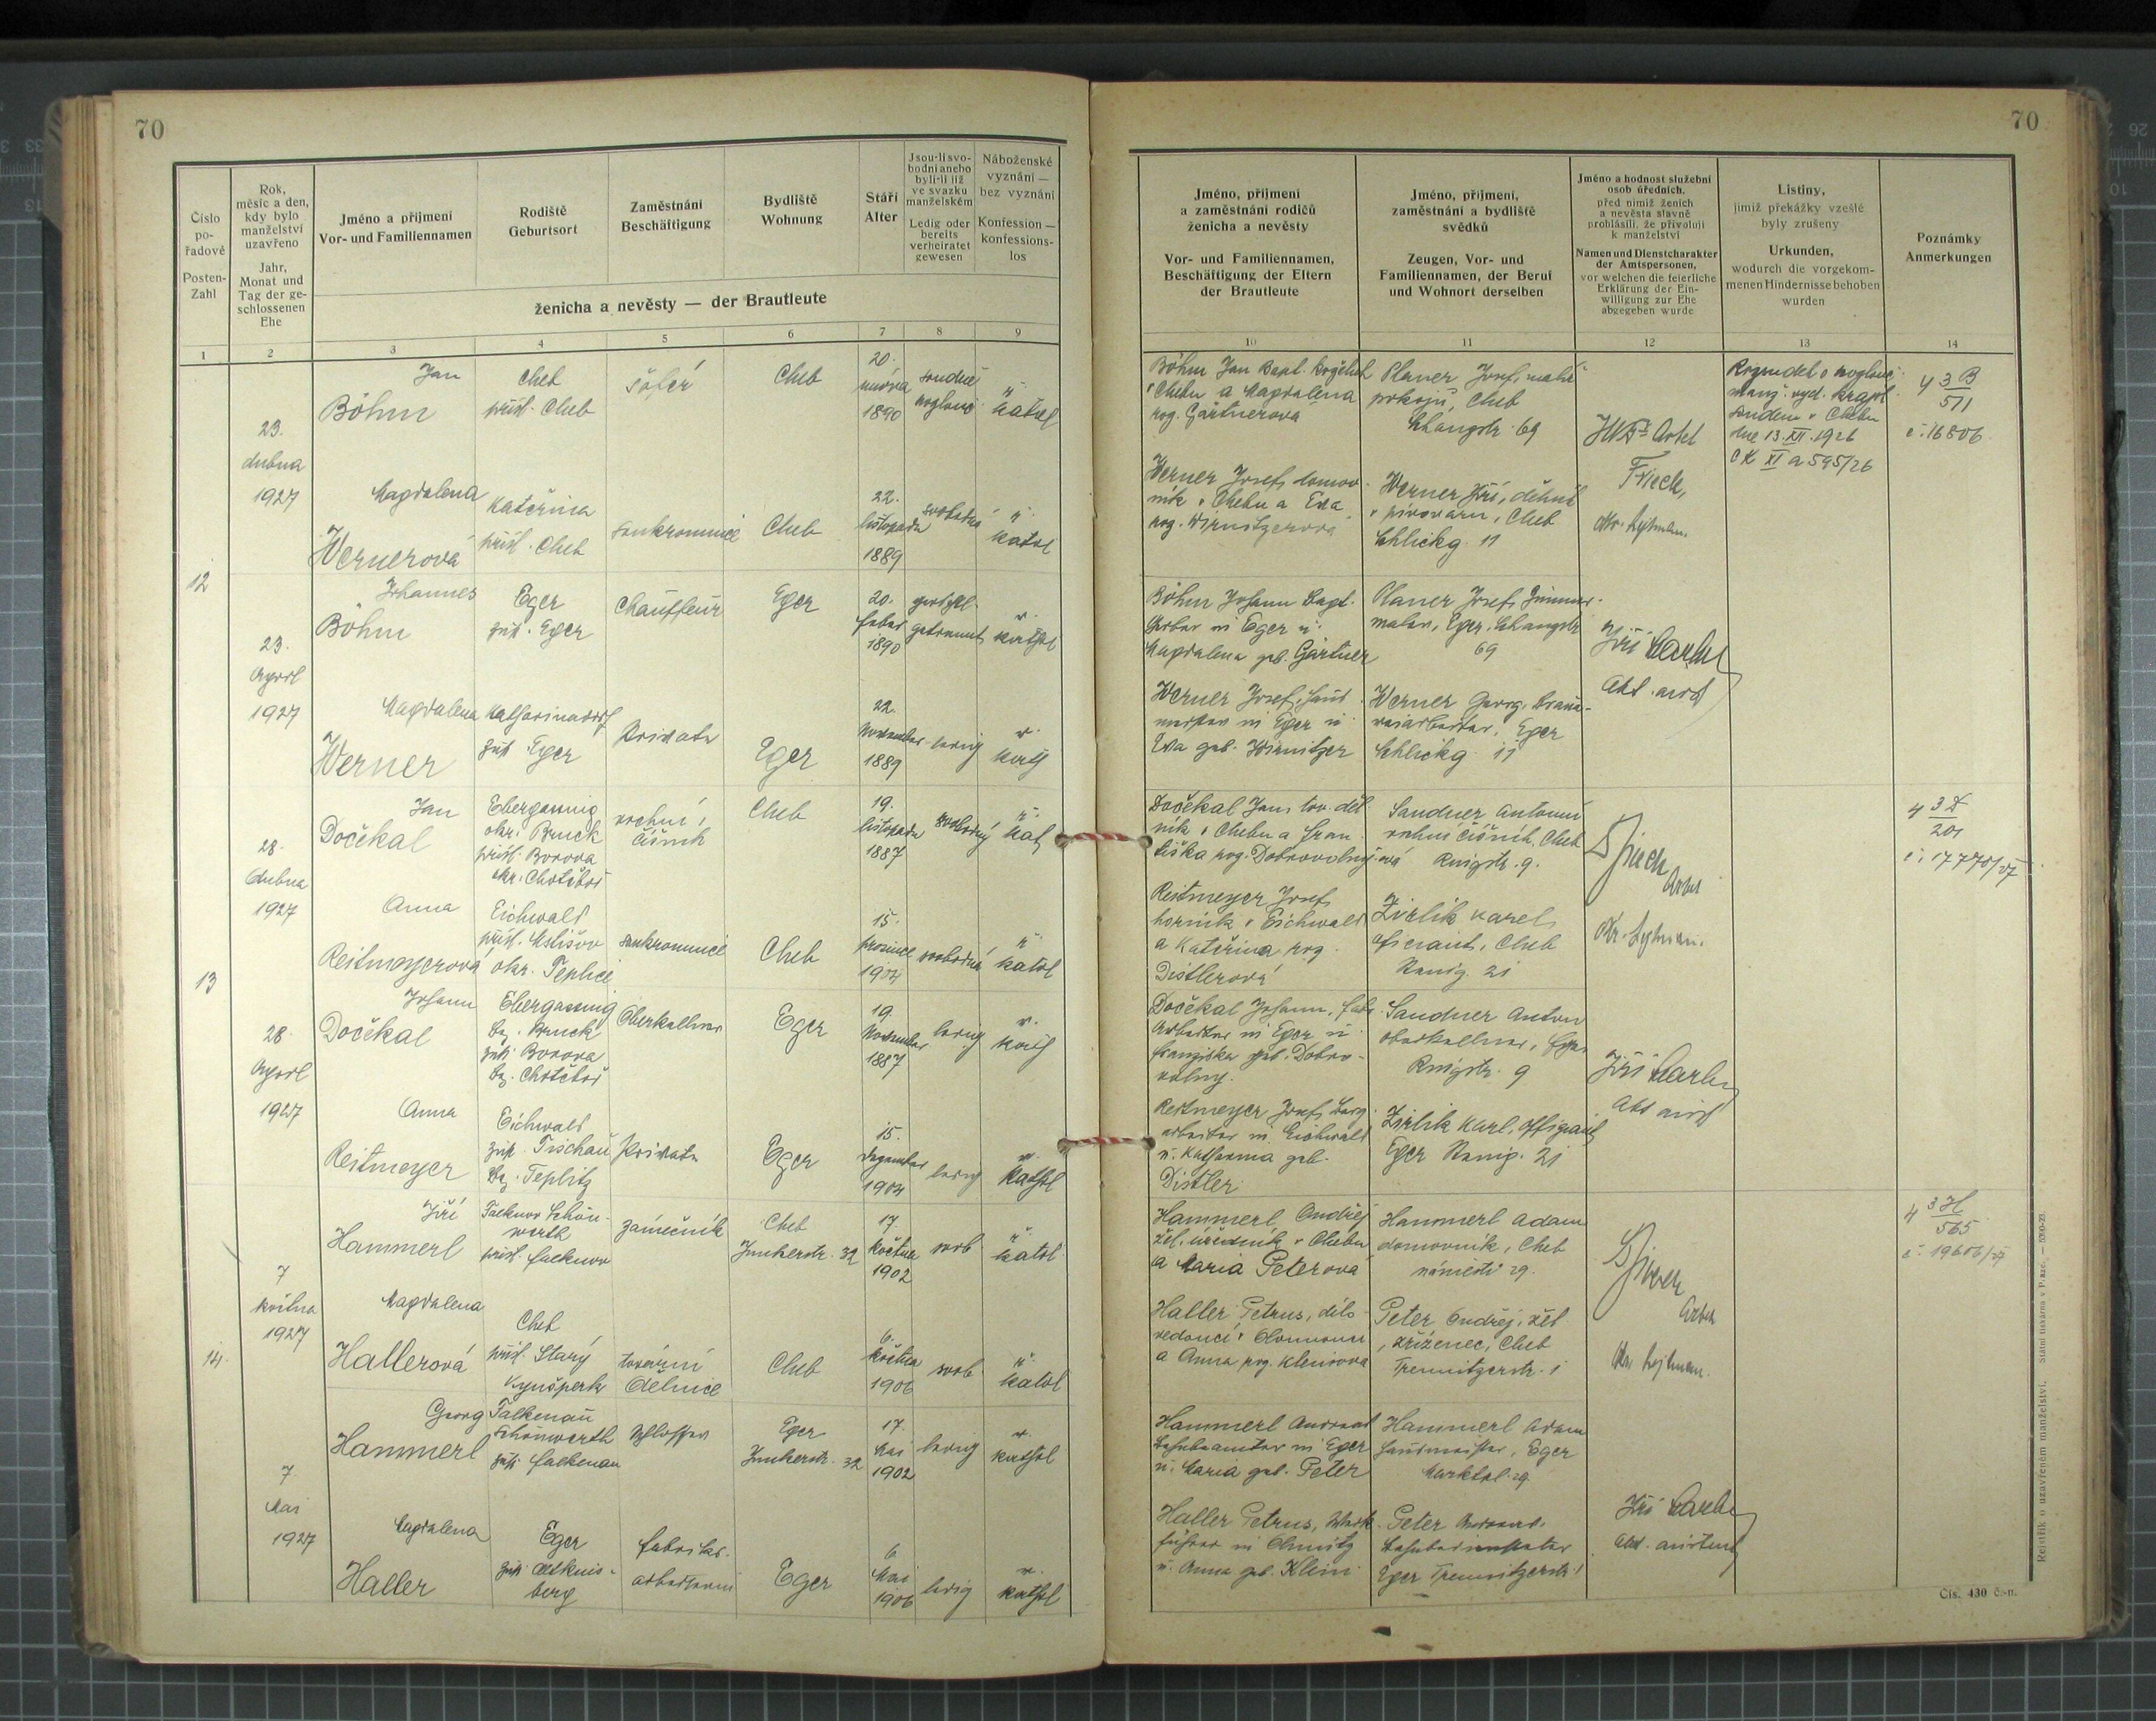 70
70
Číslo pořadové
Posten-Zahl
Rok, měsíc a den, kdy bylo manželství uzavřeno
Jahr, Monat und Tag der geschlossenen Ehe
Jméno a příjmení
Vor- und Familiennamen
Rodiště
Geburtsort
Zaměstnání
Beschäftigung
Bydliště
Wohnung
Stáří
Alter
Jsou-li svobodni anebo byli-li již ve svazku manželském
Ledig oder bereits verheiratet gewesen
Náboženské vyznání — bez vyznání
Konfession — konfessionslos
ženicha a nevěsty — der Brautleute
Jméno, příjmení
a zaměstnání rodičů
ženicha a nevěsty
Vor- und Familiennamen,
Beschäftigung der Eltern
der Brautleute
Jméno, příjmení,
zaměstnání a bydliště
svědků
Zeugen, Vor- und
Familiennamen, der Beruf
und Wohnort derselben
Jméno a hodnost služební
osob úředních,
před nimiž ženich
a nevěsta slavně
prohlásili, že přivolují
k manželství
Namen und Dienstcharakter
der Amtspersonen,
vor welchen die feierliche
Erklärung der Ein-
willigung zur Ehe
abgegeben wurde
Listiny,
jimiž překážky vzešlé
byly zrušeny
Urkunden,
wodurch die vorgekom-
menen Hindernisse behoben
wurden
Poznámky
Anmerkungen
1 2 3 4 5 6 7 8 9 10 11 12 13 14
12
23.
dubna
1927
Jan
Böhm
Cheb
přísl. Cheb
šofér
Cheb
20.
února
1890
soudně
katol
Böhm Jan Bapt.
v Chebu a Magdalena
roz. Gärtnerová
Planer Josef, malíř
pokojů, Cheb
69
Rozvedel o
13. XII. 1926
Ck XI a 595/26
4 3 B
511
č. 16806
Magdalena
Wernerová
Kateřina
přísl. Cheb
soukromnice
Cheb
22.
listopadu
1889
svobodná
ř.
katol
Werner Josef, domov-
ník v Chebu a Eva
Werner Jiří, dělník
v pivovaru, Cheb
Schlickg. 11
23.
April
1927
Johannes
Böhm
Eger
zust. Eger
Chauffeur
Eger
20.
Feber
1890
gerichtl.
getrennt
r.
kathol
Böhm Johann Bapt.
in Eger u.
Magdalena geb. Gärtner
Planer Josef, Zimmer-
maler, Eger,
69
Jiří
Magdalena
Werner
Katharinadorf
zust Eger
Private
Eger
22.
November
1889
ledig
r.
kath
Werner Josef, Haus-
meister in Eger u.
Eva geb. Wirnitzer
Werner Georg, Braue-
reiarbeiter, Eger
Schlickg. 11
13
28.
dubna
1927
Jan
Dočekal
Ebergassing
okr. Bruck
přísl. Borova
okr. Chotěboř
vrchní
číšník
Cheb
19.
listopadu
1887
svobodný
ř.
kat
Dočekal Jan, tov. děl
ník v Chebu a Fran
tiška roz. Dobrovolný-ová
Sandner Antonín
vrchní číšník, Cheb
9.
4 3 D
201
č. 17770/27
Anna
Reitmeyerová
Eichwald
přísl.
okr. Teplice
soukromnice
Cheb
15.
prosince
1904
svobodná
ř.
katol
Reitmeyer Josef
horník v Eichwald
a Kateřina roz.
Distlerová
Zirlik Karel
oficiant, Cheb
21
28.
April
1927
Johann
Dočekal
Ebergassing
Bez. Bruck
zust. Borova
Bez. Chotěboř
Oberkellner
Eger
19.
November
1887
ledig
r.
kath
Dočekal Johann, Fabr.
Arbeiter in Eger u.
Franziska geb. Dobro-
volny.
Sandner Anton
Oberkellner, Eger
9
Jiří
Anna
Reitmeyer
Eichwald
zust. Tischau
Bez. Teplitz
Private
Eger
15.
Dezember
1904
ledig
r.
kathol
Reitmeyer Josef, Berg-
arbeiter in Eichwald
u. Katharina geb.
Distler
Zirlik Karl, Offiziant
Eger 21
14.
7
května
1927
Jiří
Hammerl
Falknov Schön-
werth
přísl. Falknov
zámečník
Cheb
Junkerstr. 32
17.
května
1902
svob
ř.
katol
Hammerl Ondřej
žel. úředník v Chebu
a Maria Peterová
Hammerl Adam
domovník, Cheb
náměstí 29.
4 3 H
565
č. 19606/27
Magdalena
Hallerová
Cheb
přísl. Starý
Kynšperk
tovární
dělnice
Cheb
6.
května
1906
svob.
ř.
katol
Haller Petrus, dílo-
vedoucí v Olomouci
a Anna roz. Kleinova
Peter Ondřej, žel
zřízenec, Cheb
Tremnitzerstr. 1
7.
Mai
1927
Georg
Hammerl
Falkenau
Schönwerth
zust. Falkenau
Schlosser
Eger
Junkerstr. 32
17.
Mai
1902
ledig
r.
kathol
Hammerl Andreas
Bahnbeamter in Eger
u. Maria geb. Peter
Hammerl Adam
Hausmeister, Eger
Marktpl. 29.
Jiří
Magdalena
Haller
Eger
zust. Altkins-
berg
Fabriks-
arbeiterin
Eger
6.
Mai
1906
ledig
r.
kathol
Haller Petrus, Werk-
führer in Olmütz
u. Anna geb. Klein
Peter Andreas,
Eger Tremnitzerstr. 1
Rejstřík o uzavřeném manželství. Státní tiskárna v Praze. — 5300-23.
Čís. 430 č.-n.